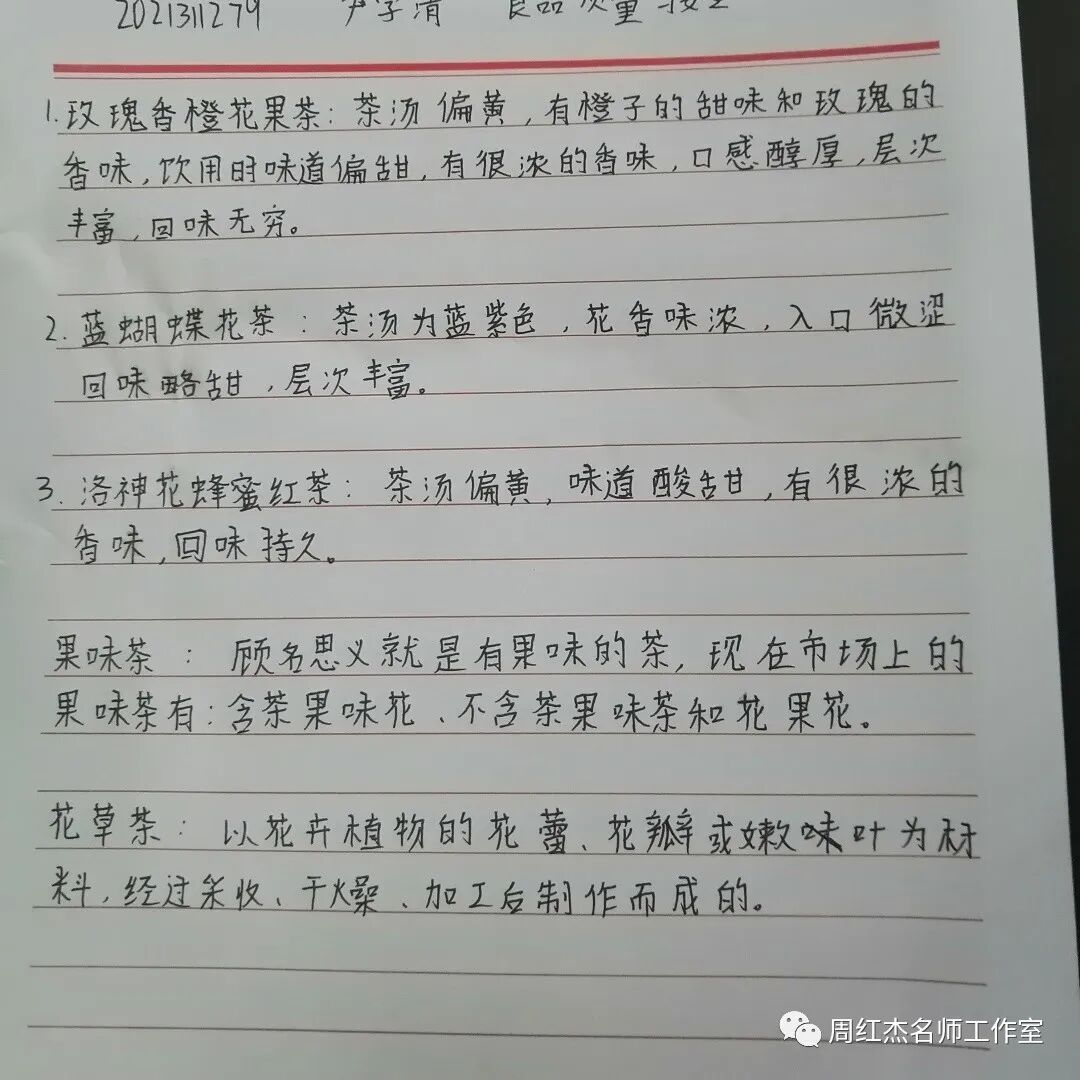 2021311279 尹学清 食品质量与安全
1.玫瑰香橙花果茶：茶汤偏黄，有橙子的甜味和玫瑰的
香味，饮用时味道偏甜，有很浓的香味，口感醇厚，层次
丰富，回味无穷。
2.蓝蝴蝶花茶：茶汤为蓝紫色，花香味浓，入口微涩
回味略甜，层次丰富。
3.洛神花蜂蜜红茶：茶汤偏黄，味道酸甜，有很浓的
香味，回味持久。
果味茶：顾名思义就是有果味的茶，现在市场上的
果味茶有：含茶果味花、不含茶果味茶和花果花。
花草茶：以花卉植物的花蕾、花瓣或嫩味叶为材
料，经过采收、干燥、加工后制作而成的。
周红杰名师工作室